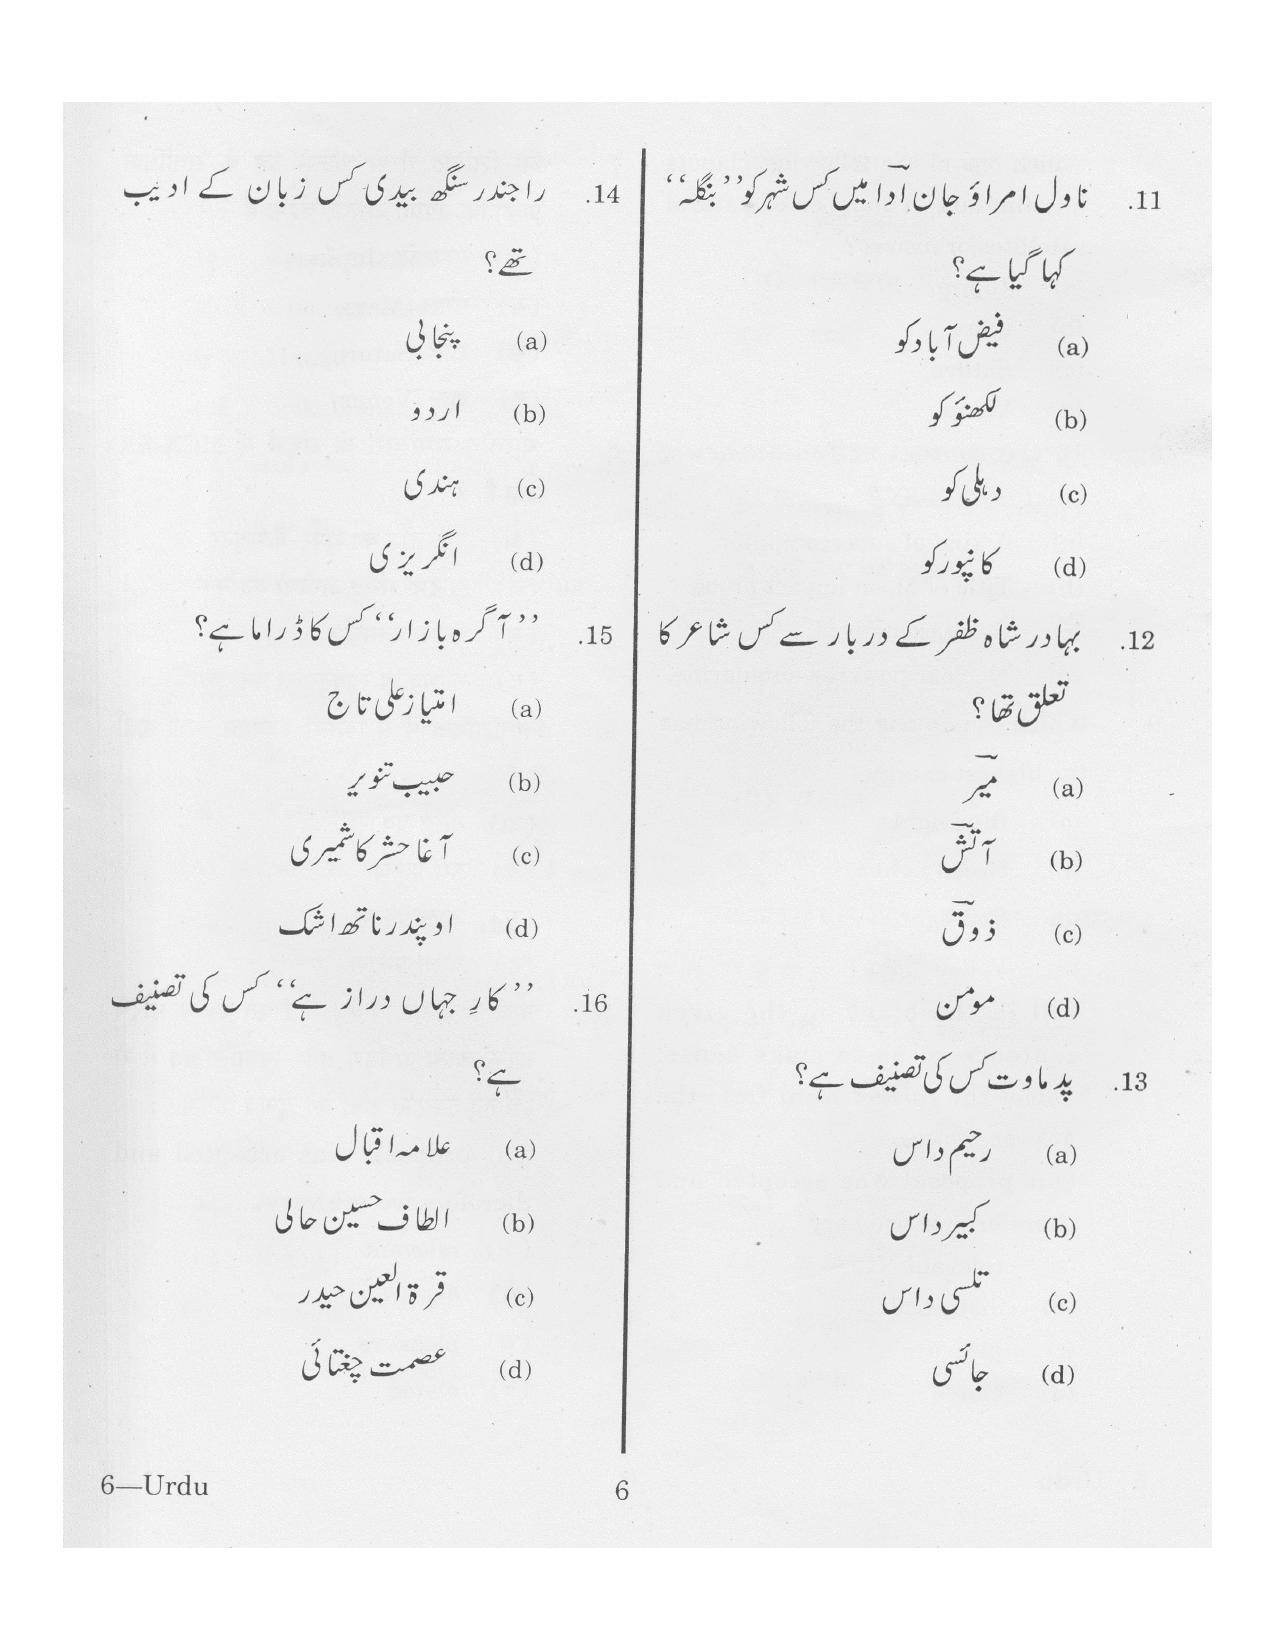 11. ناول امراؤ جان اداؔ میں کس شہر کو ’’بنگلہ‘‘
کہا گیا ہے؟
(a) فیض آباد کو
(b) لکھنؤ کو
(c) دہلی کو
(d) کانپور کو
12. بہادر شاہ ظفر کے دربار سے کس شاعر کا
تعلق تھا؟
(a) میرؔ
(b) آتشؔ
(c) ذوقؔ
(d) مومن
13. پدماوت کس کی تصنیف ہے؟
(a) رحیم داس
(b) کبیر داس
(c) تلسی داس
(d) جائسی
14. راجندر سنگھ بیدی کس زبان کے ادیب
تھے؟
(a) پنجابی
(b) اردو
(c) ہندی
(d) انگریزی
15. ’’آگرہ بازار‘‘ کس کا ڈراما ہے؟
(a) امتیاز علی تاج
(b) حبیب تنویر
(c) آغا حشر کاشمیری
(d) اوپندر ناتھ اشک
16. ’’کارِ جہاں دراز ہے‘‘ کس کی تصنیف
ہے؟
(a) علامہ اقبال
(b) الطاف حسین حالی
(c) قرۃ العین حیدر
(d) عصمت چغتائی
6—Urdu
6